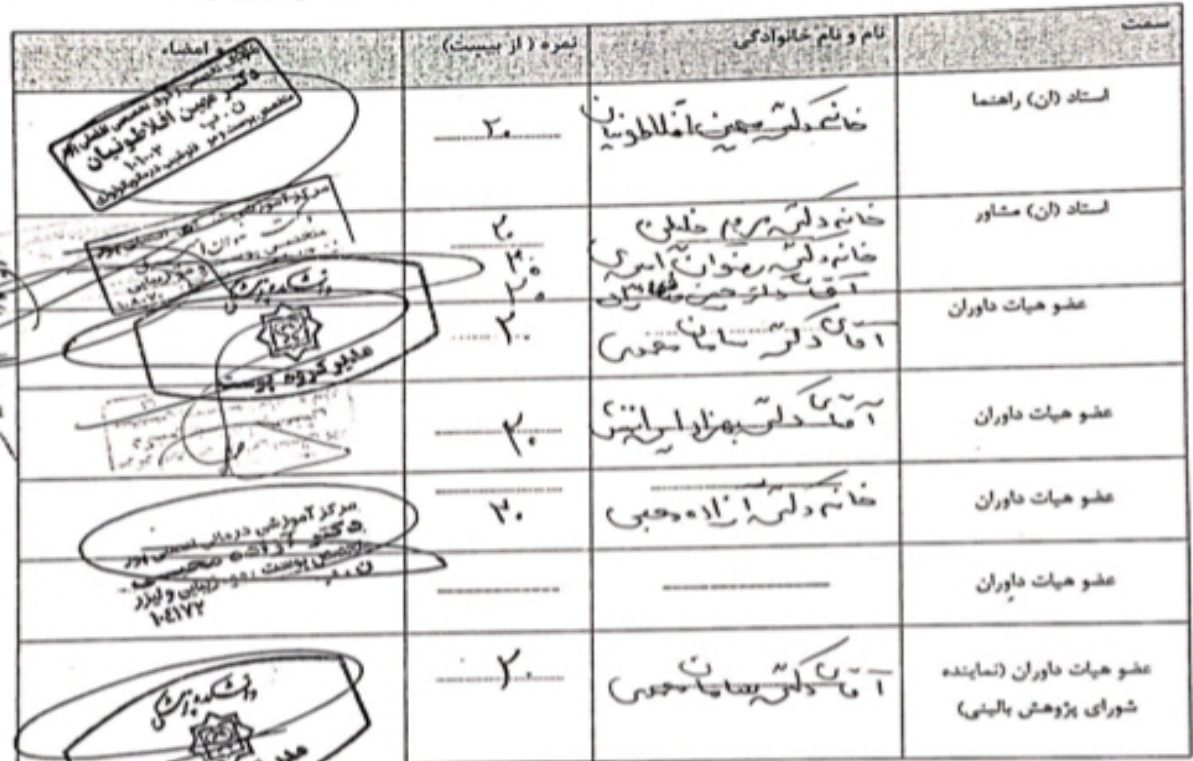 سمت نام و نام خانوادگی نمره (از بیست) و امضاء
استاد (ان) راهنما خانم دکتر مهین افلاطونیان ۲۰
دکتر مهین افلاطونیان
ن . پ
۱۰۱۰۰۲
استاد (ان) مشاور خانم دکتر مریم خلیلی ۲۰
خانم دکتر رضوان امیری ۲۰
آقای دکتر ۲۰
عضو هیات داوران آقای دکتر سامان محبی ۲۰
دانشکده پزشکی
مدیر گروه پوست
عضو هیات داوران آقای دکتر بهزاد ایرانمنش ۲۰
عضو هیات داوران خانم دکتر آزاده محبی ۲۰
مرکز آموزشی درمانی
دکتر آزاده محبی
متخصص پوست ، مو، زیبایی و لیزر
ن . پ
۱۰۴۱۷۲
عضو هیات داوران
عضو هیات داوران (نماینده شورای پژوهش بالینی) آقای دکتر سامان محبی ۲۰
دانشکده پزشکی